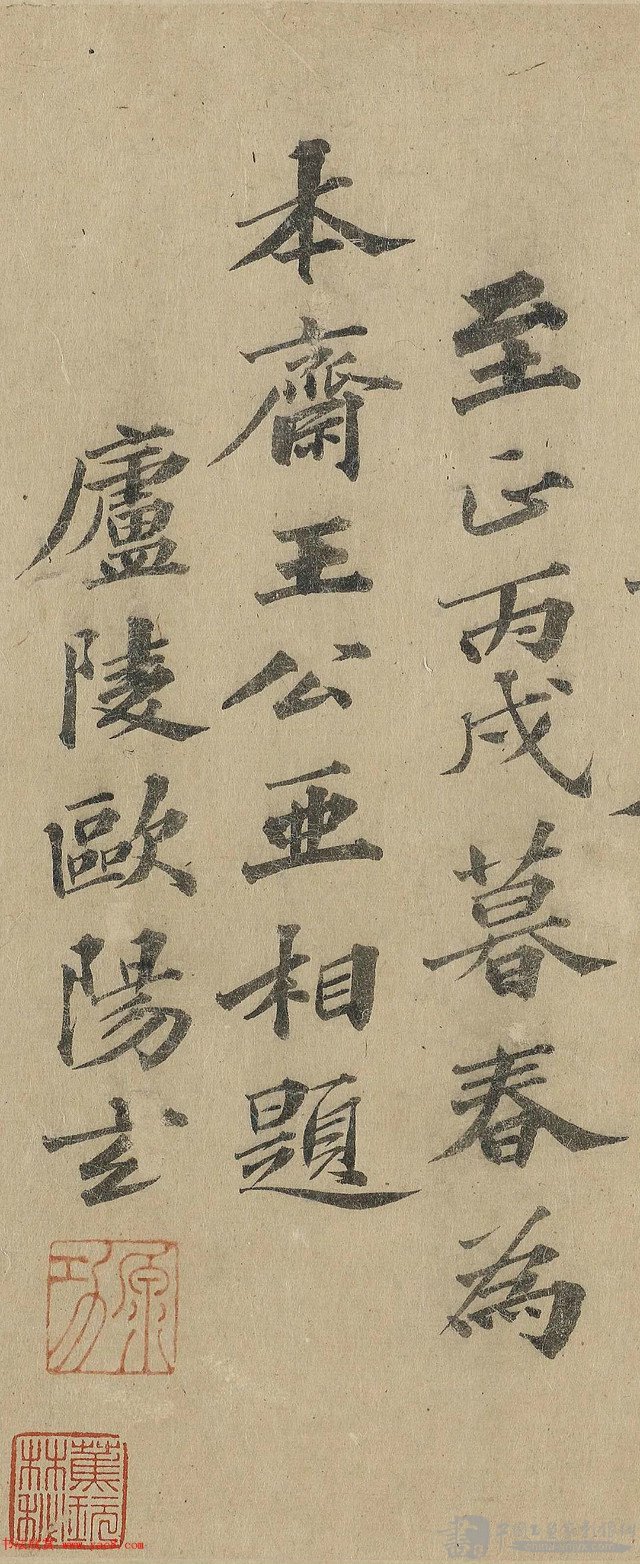 至正丙戌暮春為
本齋王公亞相題
廬陵歐陽玄
原功
蕉林